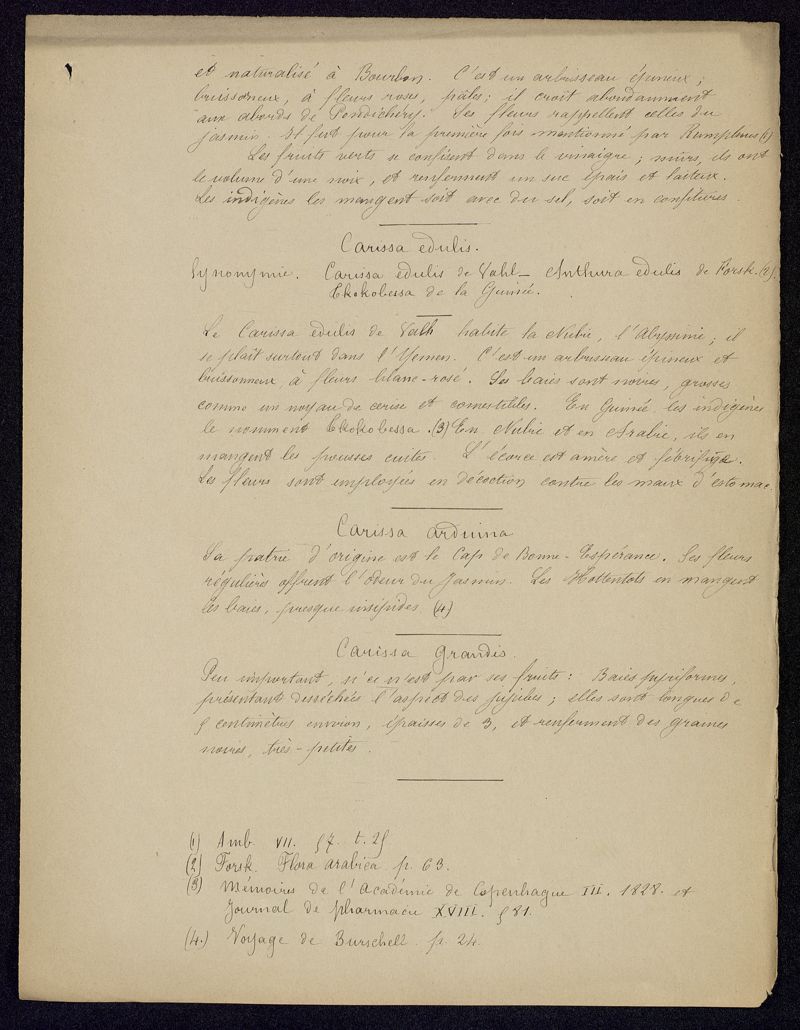 et naturalisé à Bourbon. C'est un arbrisseau épineux,
buissonneux, à fleurs roses, pâles; il croit abondamment
aux abords de Pondichéry. Ses fleurs rappellent celles du
jasmin. Il fut pour la première fois mentionné par Rumphius (1)
Les fruits verts se confisent dans le vinaigre; mûrs, ils ont
le volume d'une noix, et renferment un suc épais et laiteux.
Les indigènes les mangent soit avec du sel, soit en confitures.
Carissa edulis.
Synonymie. Carissa edulis de Vahl — Anthura edulis de Forsk. (2).
Ekokobessa de la Guinée.
Le Carissa edulis de Valh habite la Nubie, l'Abyssinie; il
se plaît surtout dans l'Yemen. C'est un arbrisseau épineux et
buissonneux, à fleurs blanc-rosé. Ses baies sont noires, grosses
comme un noyau de cerise et comestibles. En Guinée les indigènes
le nomment Ekokobessa. (3) En Nubie et en Arabie, ils en
mangent les pousses cuites. L'écorce est amère et fébrifuge.
Les fleurs sont employées en décoction contre les maux d'estomac.
Carissa arduina
Sa patrie d'origine est le Cap de Bonne-Espérance. Ses fleurs
régulières offrent l'odeur du Jasmin. Les Hottentots en mangent
les baies, presque insipides (4)
Carissa Grandis.
Peu important, si ce n'est par ses fruits: Baies pyriformes,
présentant desséchées l'aspect des jujubes; elles sont longues de
5 centimètres environ, épaisses de 3, et renferment des graines
noires, très-petites.
(1) Amb. VII. 57. t. 25
(2) Forsk. Flora arabica p. 63.
(3) Mémoires de l'Académie de Copenhague III. 1828. et
Journal de pharmacie XVIII. 581.
(4.) Voyage de Burschell. p. 24.